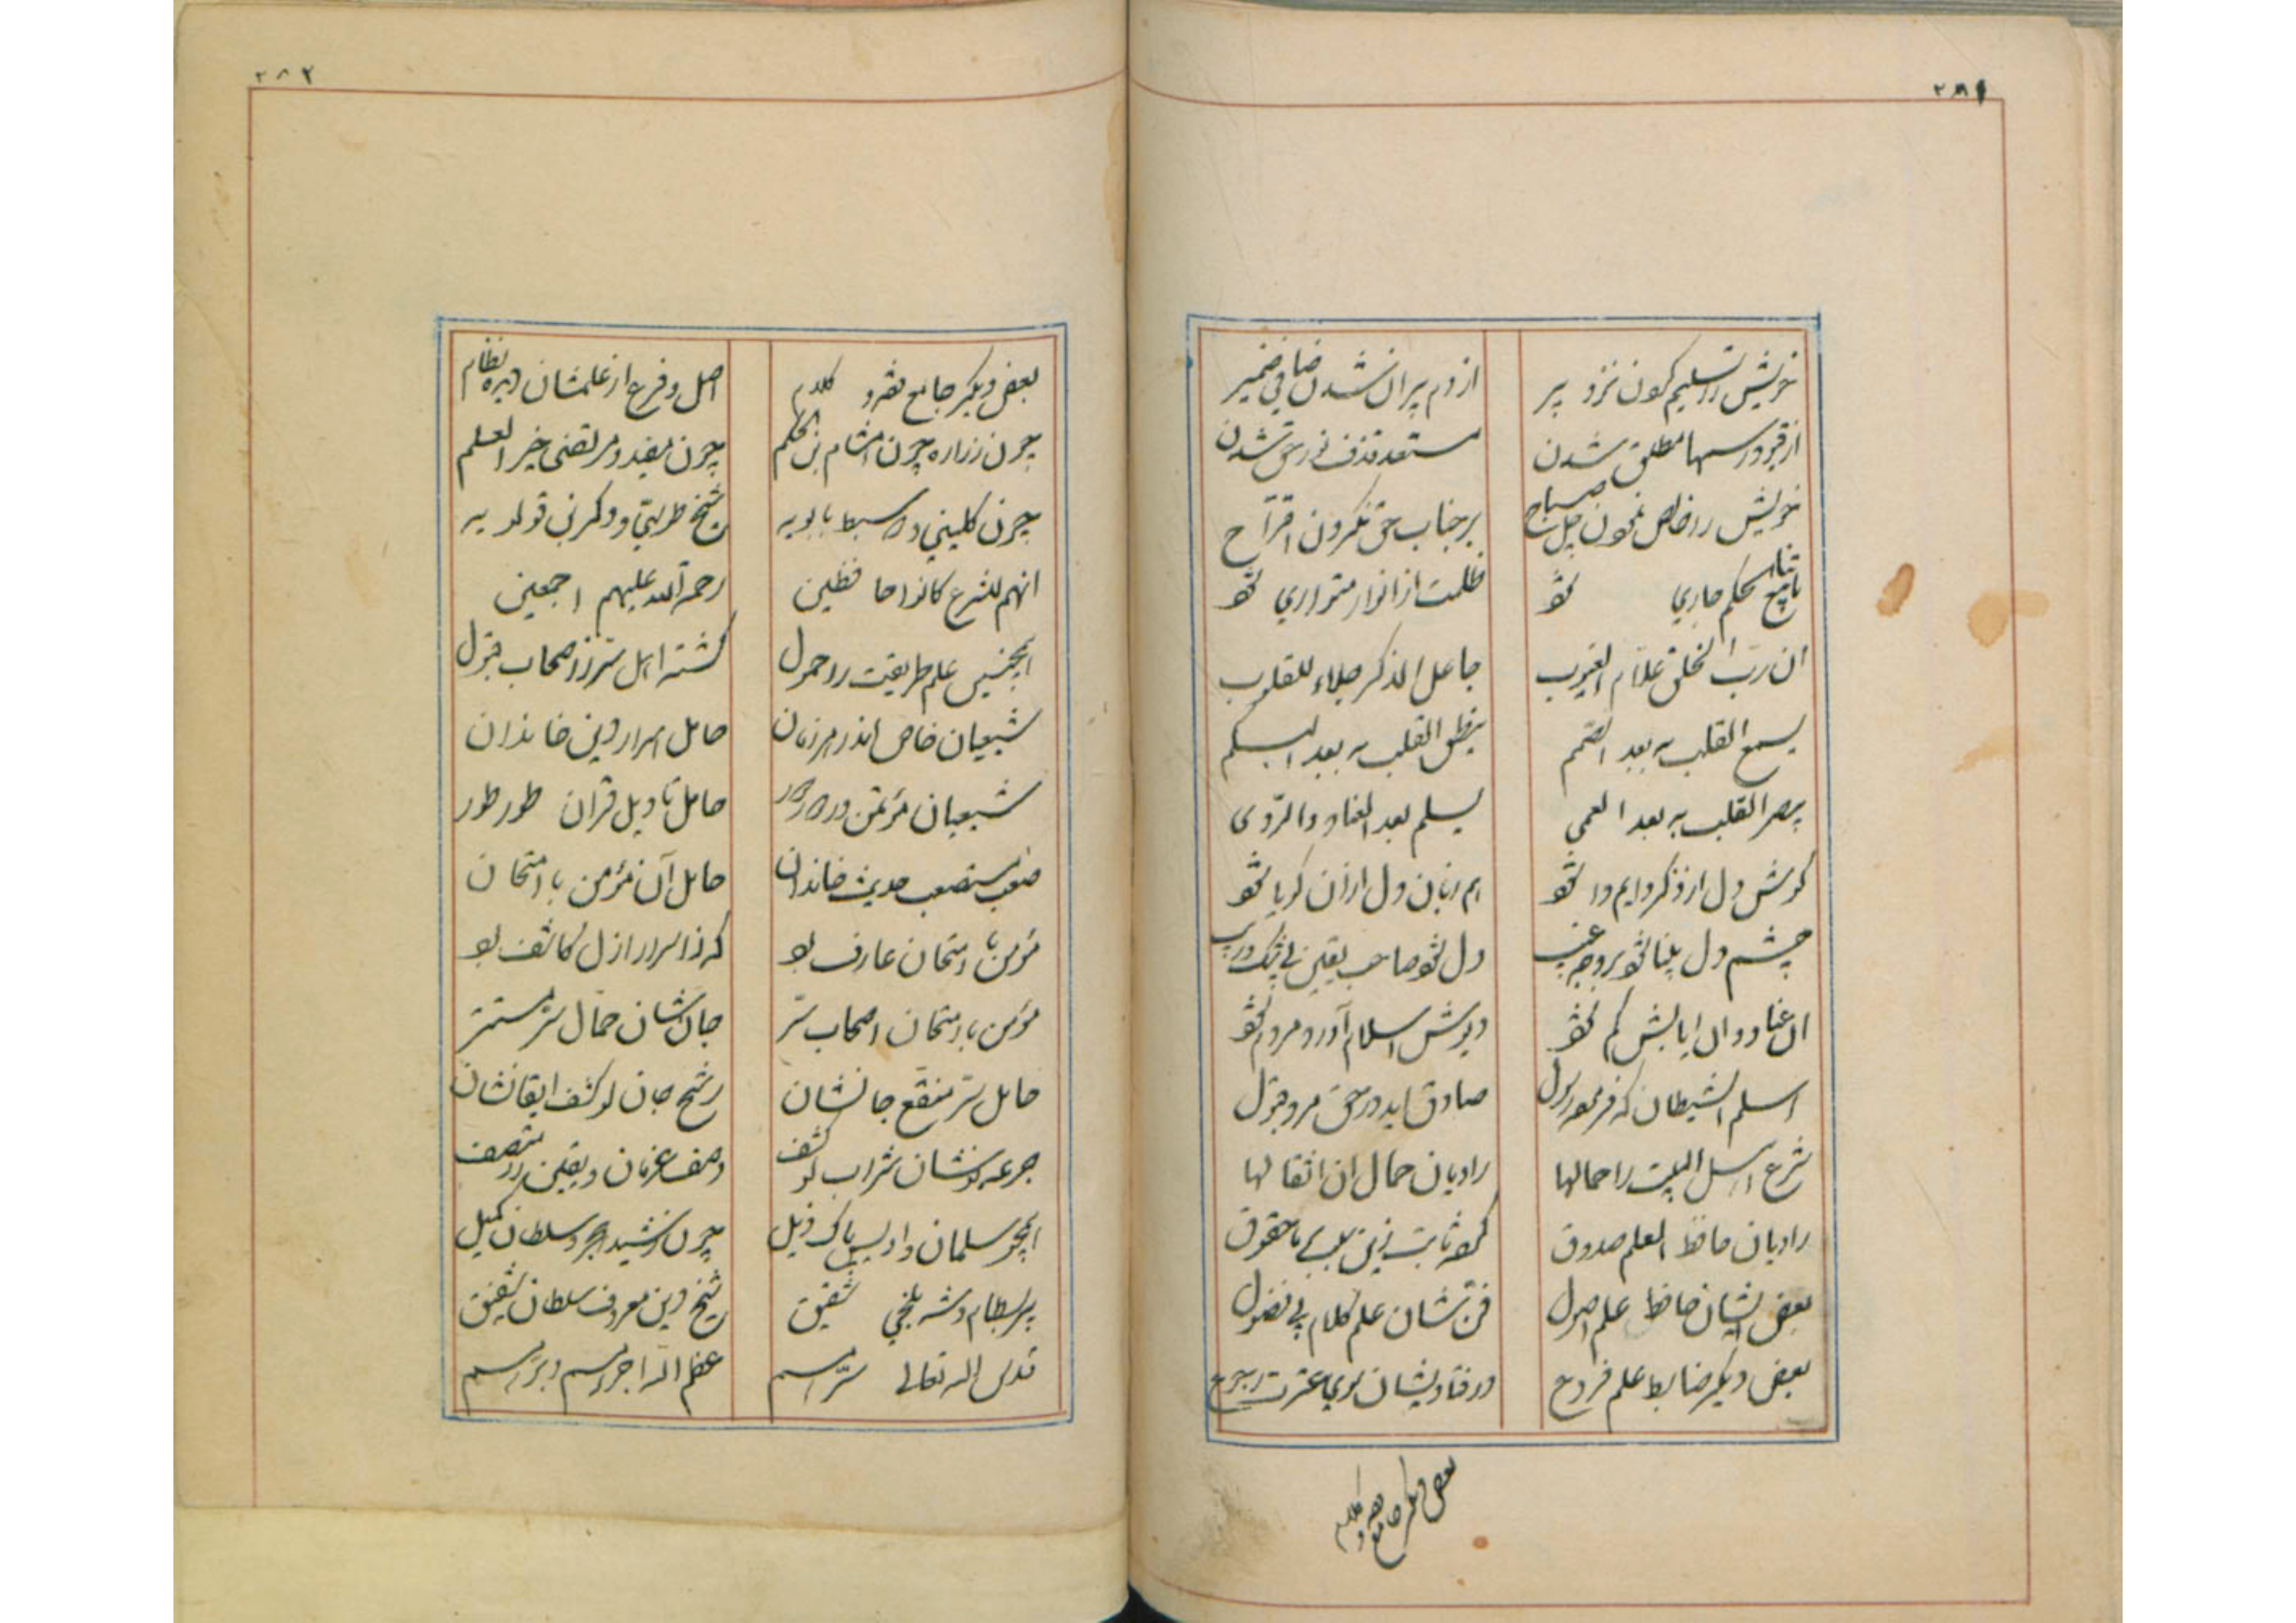 ٢٨١
خویش را تسلیم کردن نزد پیر	از دم پیران شدن صافی ضمیر
از قیود رسمها مطلق شدن	مستعد قذف نور حق شدن
خویش را خالص نمودن چل صباح	بر جناب حق نکردن اقتراح
تا ینابیع حکم جاری شود	ظلمت از انوار متواری شود
ان ربّ الخلق علّام الغیوب	جاعل الذکر جلاء للقلوب
یسمع القلب به بعد الصّمم	ینطق القلب به بعد البکم
یبصر القلب به بعد العمی	یسلم بعد العناد والرّدی
گوش دل از ذکر دایم وا شود	هم زبان دل از آن گویا شود
چشم دل بینا شود بر وجه غیب	دل شود صاحب یقین بی شک و ریب
آن عناد و آن ابایش کم شود	دیوش اسلام آورد مردم شود
اسلم الشیطان که فرمود رسول	صادق آید در حق مرد قبول
شرع اهل البیت را حمالها	راویان حمال آن اثقالها
راویان حافظ العلم صدوق	کرده ثابت زین سبب بر ما حقوق
بعض ایشان حافظ علم اصول	فن شان علم کلام بی فضول
بعض دیگر ضابط علم فروع	در فتاویشان بسوی عترت رجوع
بعض دیگر جامع فقه و کلام
٢٨٢
بعض دیگر جامع فقه و کلام	اصل و فرع از علمشان دیده نظام
چون زراره چون هشام بن الحکم	چون مفید و مرتضی خیر العلم
چون کلینی و آن سبط بابویه	شیخ طوسی و دگر بن قولویه
انهم للشرع کانوا حافظین	رحمة الله علیهم اجمعین
همچنین علم طریقت را حمول	گشته اهل سرّ ز اصحاب قبول
شیعیان خاص اندر هر زمان	حامل اسرار دین خاندان
شیعیان مؤتمن در هر دور	حامل تاویل قرآن طور طور
صعب مستصعب حدیث خاندان	حامل آن مؤمن با امتحان
مؤمن با امتحان عارف بود	که ز اسرار ازل کاشف بود
مؤمن با امتحان اصحاب سّر	جان شان حمال سّر مستتر
حامل سّر مقنّع جانشان	رشح جان لو کشف ایقانشان
جرعه نوشان شراب لو کشف	وصف عرفان و یقین را متصف
همچو سلمان و اویس پاک ذیل	چون رشید هجر و سلطان کمیل
پیر بسطام و شه بلخی شقیق	شیخ دین معروف سلطان شفیق
قدس الله تعالی سّرهم	عظم الله اجرهم و برّهم